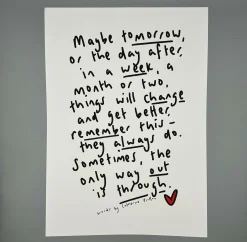 Maybe tomorrow,
or the day after,
in a week, a
month or two,
things will change
and get better,
remember this -
they always do.
Sometimes, the
only way out
is through.
words by